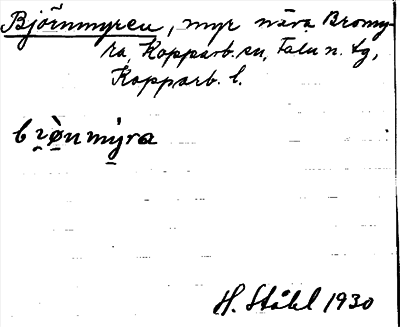 Björnmyren, myr nära Bromy-
ra, Kopparb. sn, Falu n. tg,
Kopparb. l.
H. Ståhl 1930